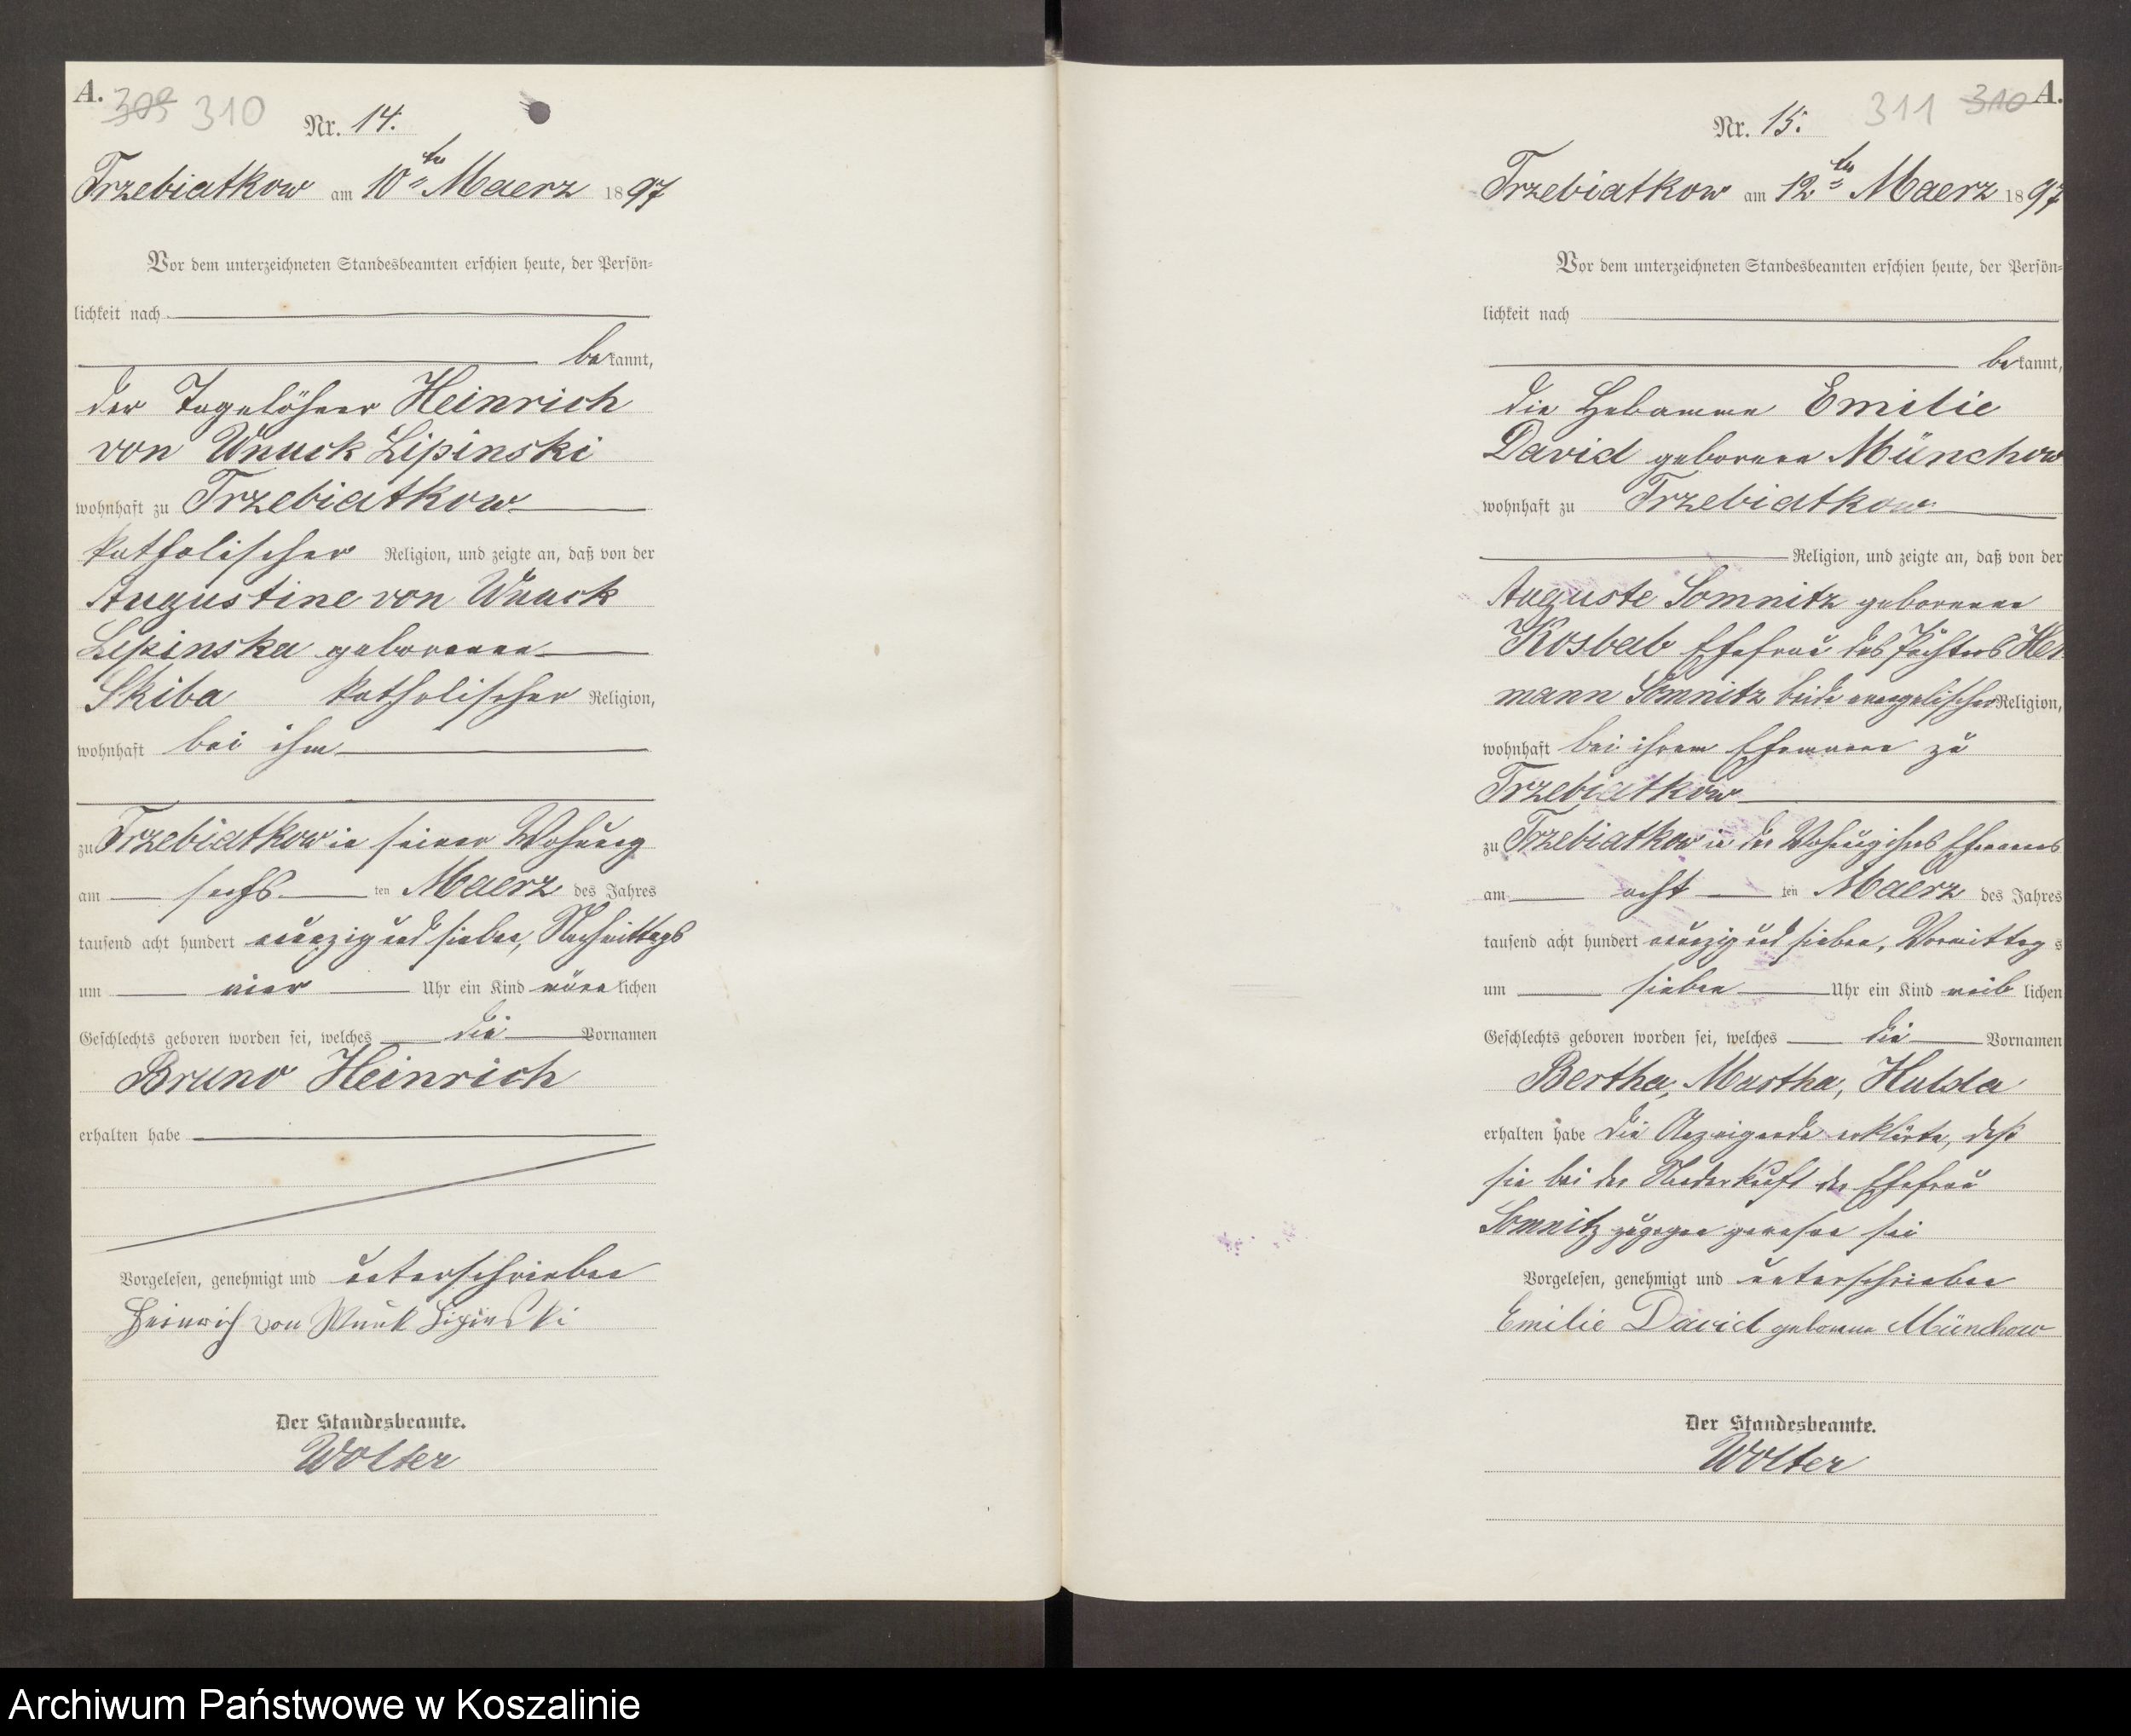 A. 309 310
Nr. 14.
Trzebiatkow am 10ten Maerz 1897
Vor dem unterzeichneten Standesbeamten erschien heute, der Persön-
lichkeit nach
bekannt,
der Tagelöhner Heinrich
von Wnuck Lipinski
wohnhaft zu Trzebiatkow
katholischer Religion, und zeigte an, daß von der
Augustine von Wnuck
Lipinska geborenen
Skiba katholischer Religion,
wohnhaft bei ihm
zu Trzebiatkow in seiner Wohnung
am sechs ten Maerz des Jahres
tausend acht hundert neunzig und sieben, Nachmittags
um vier Uhr ein Kind männlichen
Geschlechts geboren worden sei, welches die Vornamen
Bruno Heinrich
erhalten habe
Vorgelesen, genehmigt und unterschrieben
Heinrich von Wnuk Lipinski
Der Standesbeamte.
Wolter
311 310 A.
Nr. 15.
Trzebiatkow am 12ten Maerz 1897
Vor dem unterzeichneten Standesbeamten erschien heute, der Persön-
lichkeit nach
bekannt,
die Hebamme Emilie
David geborene Münchow
wohnhaft zu Trzebiatkow
Religion, und zeigte an, daß von der
Auguste Somnitz geborenen
Kosbab Ehefrau des Pächters Her
mann Somnitz beide evangelischer Religion,
wohnhaft bei ihrem Ehemanne zu
Trzebiatkow
zu Trzebiatkow in der Wohnung ihres Ehemannes
am acht ten Maerz des Jahres
tausend acht hundert neunzig und sieben, Vormittags
um sieben Uhr ein Kind weiblichen
Geschlechts geboren worden sei, welches die Vornamen
Bertha, Martha, Hulda
erhalten habe Die Anzeigende erklärte, daß
sie bei der Niederkunft der Ehefrau
Somnitz zugegen gewesen sei
Vorgelesen, genehmigt und unterschrieben
Emilie David geborene Münchow
Der Standesbeamte.
Wolter
Archiwum Państwowe w Koszalinie